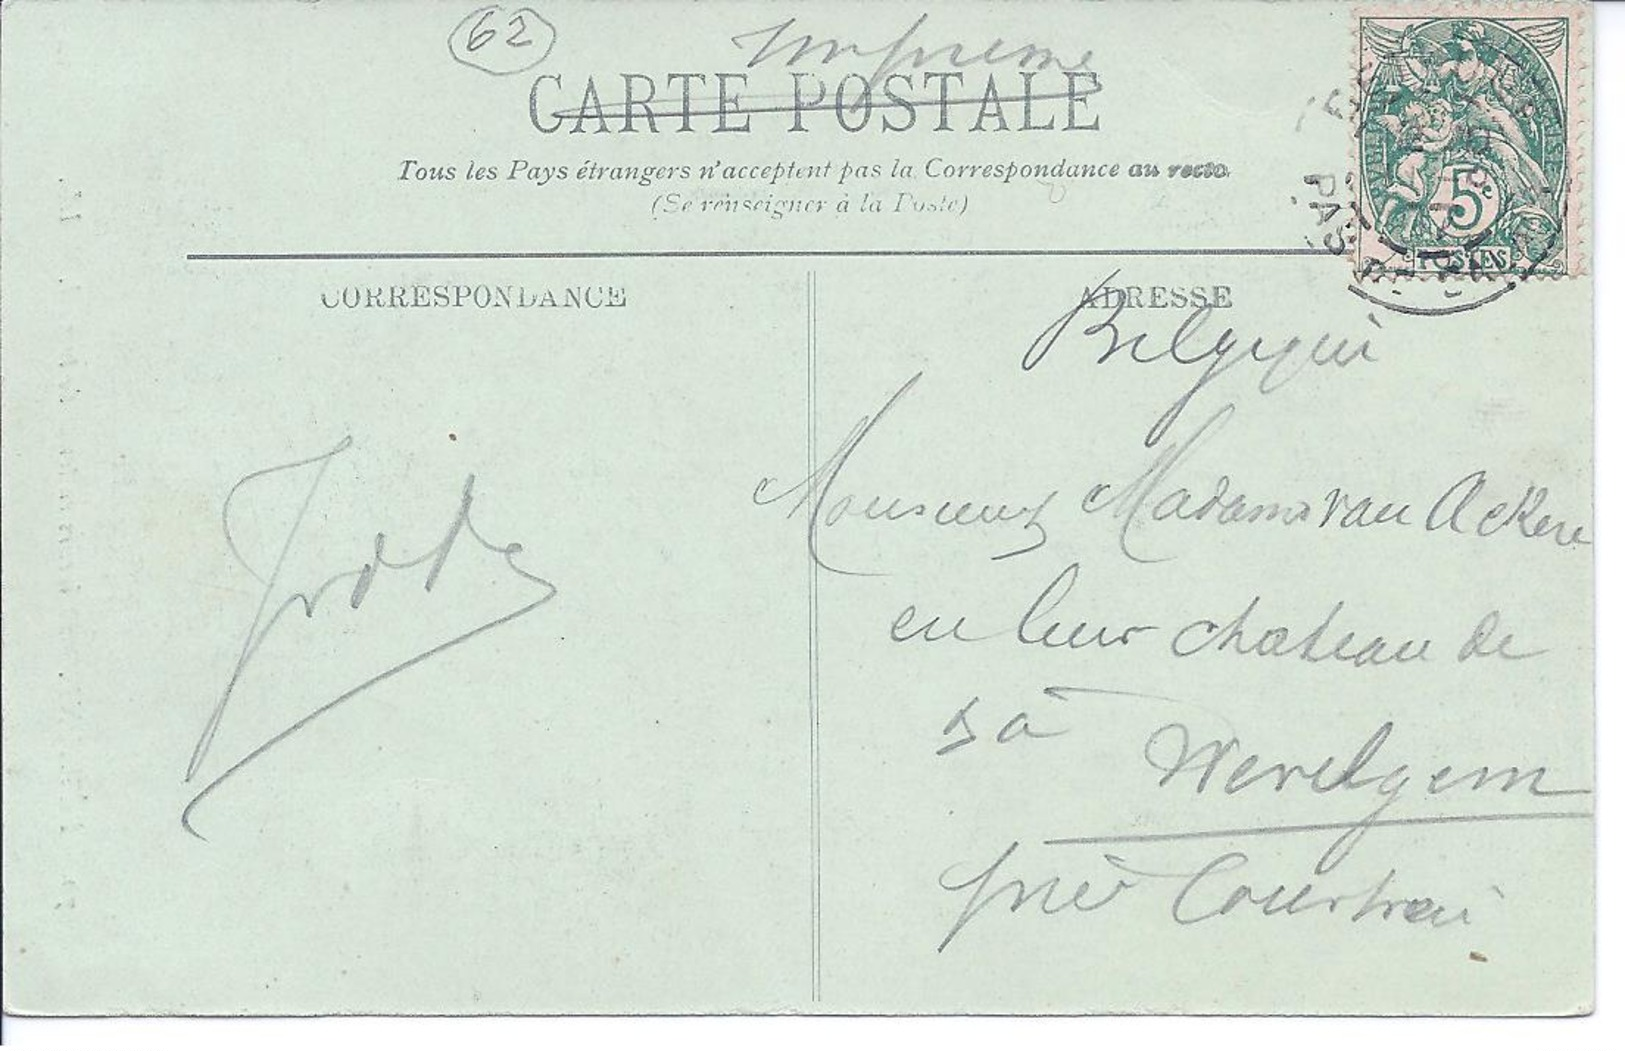 62
Imprimé
CARTE POSTALE
Tous les Pays étrangers n'acceptent pas la Correspondance au recto
(Se renseigner à la Poste)
5c
POSTES
PAS
CORRESPONDANCE
ADRESSE
Belgique
Monsieur & Madame van Ackere
en leur château de
& à Wevelgem
près Courtrai